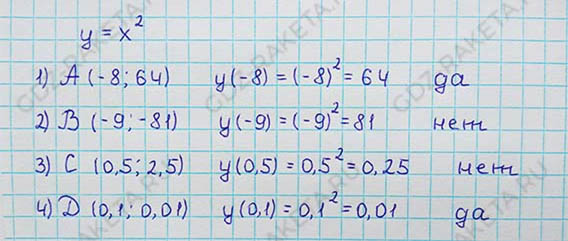 y = x²
1) A (-8; 64) y(-8) = (-8)² = 64 да
2) B (-9; -81) y(-9) = (-9)² = 81 нет
3) C (0,5; 2,5) y(0,5) = 0,5² = 0,25 нет
4) D (0,1; 0,01) y(0,1) = 0,1² = 0,01 да
GDZ-RAKETA.RU